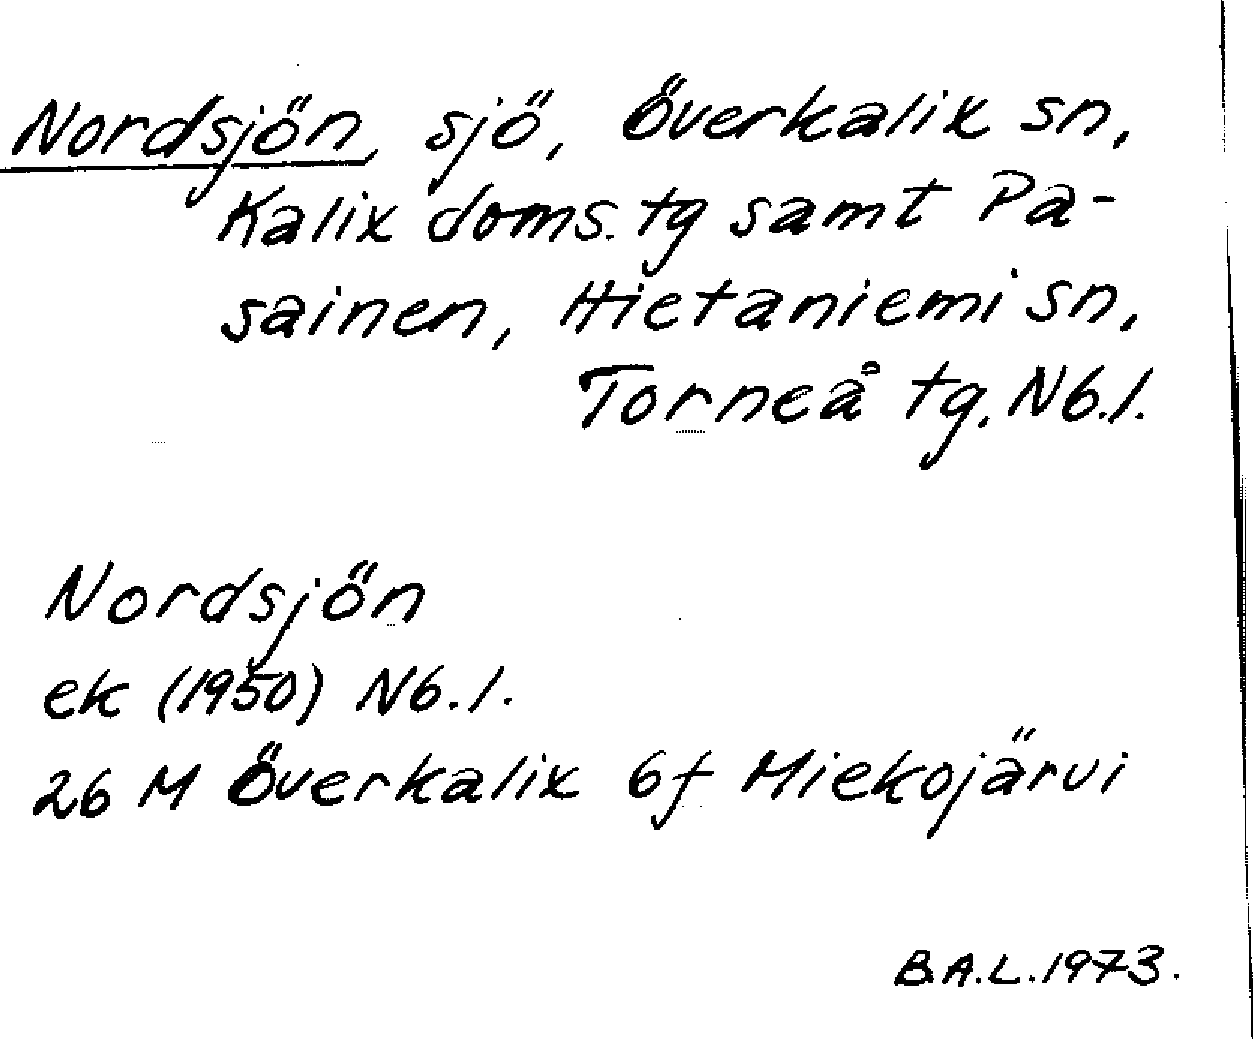 Nordsjön, sjö, Överkalix sn,
Kalix doms. tg samt Pa-
sainen, Hietaniemi sn,
Torneå tg. Nb.l.
Nordsjön
ek (1950) Nb.l.
26 M Överkalix 6f Miekojärvi
B.A.L. 1973.